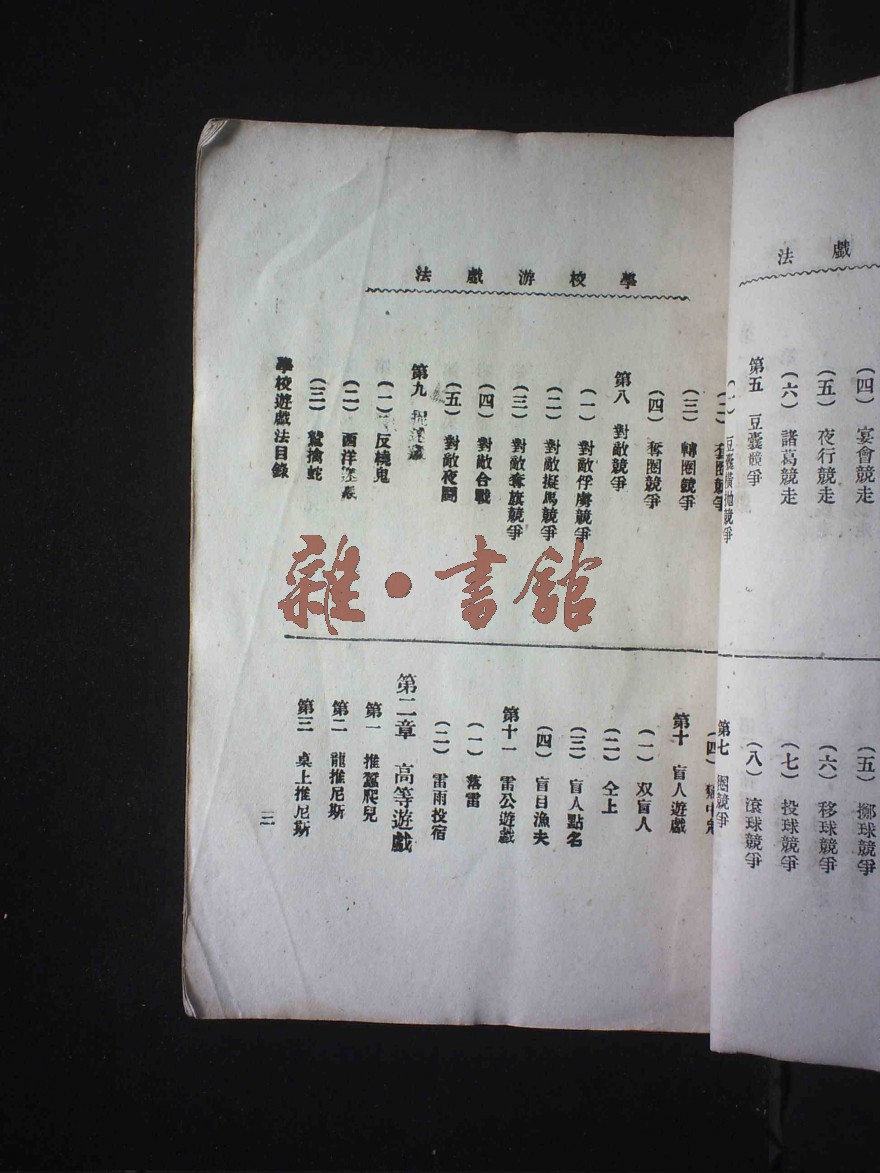 戲法
(四) 宴會競走
(五) 夜行競走
(六) 諸葛競走
第五 豆囊競爭
(五) 擲球競爭
(六) 移球競爭
(七) 投球競爭
(八) 滾球競爭
學校游戲法
豆囊橫拋競爭
(二) 套圈競爭
(三) 轉圈競爭
(四) 奪圈競爭
第八 對敵競爭
(一) 對敵俘虜競爭
(二) 對敵擬馬競爭
(三) 對敵奪旗競爭
(四) 對敵合戰
(五) 對敵夜鬪
第九 捉
(一) 反繞鬼
(二) 西洋
(三) 鷲擒蛇
學校遊戲法目錄
第七 圈競爭
(四)
第十 盲人遊戲
(一) 双盲人
(二) 仝上
(三) 盲人點名
(四) 盲目漁夫
第十一 雷公遊戲
(一) 落雷
(二) 雷雨投宿
第二章 高等遊戲
第一 推蠶爬兒
第二 龍推尼斯
第三 桌上推尼斯
三
雜·書館